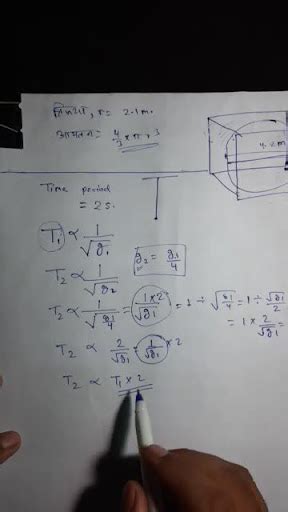 त्रिज्या, r = 2.1m.
आयतन = 4/3 × π r 3
4.2m
Time period
= 2s.
T₁ ∝ 1/√g₁
g₂ = g₁/4
T₂ ∝ 1/√g₂
T₂ ∝ 1/√(g₁/4) = 1×2/√g₁ = 1 ÷ √(g₁/4) = 1 ÷ √g₁/2
= 1 × 2/√g₁ =
T₂ ∝ 2/√g₁ = 1/√g₁ × 2
T₂ ∝ T₁ × 2